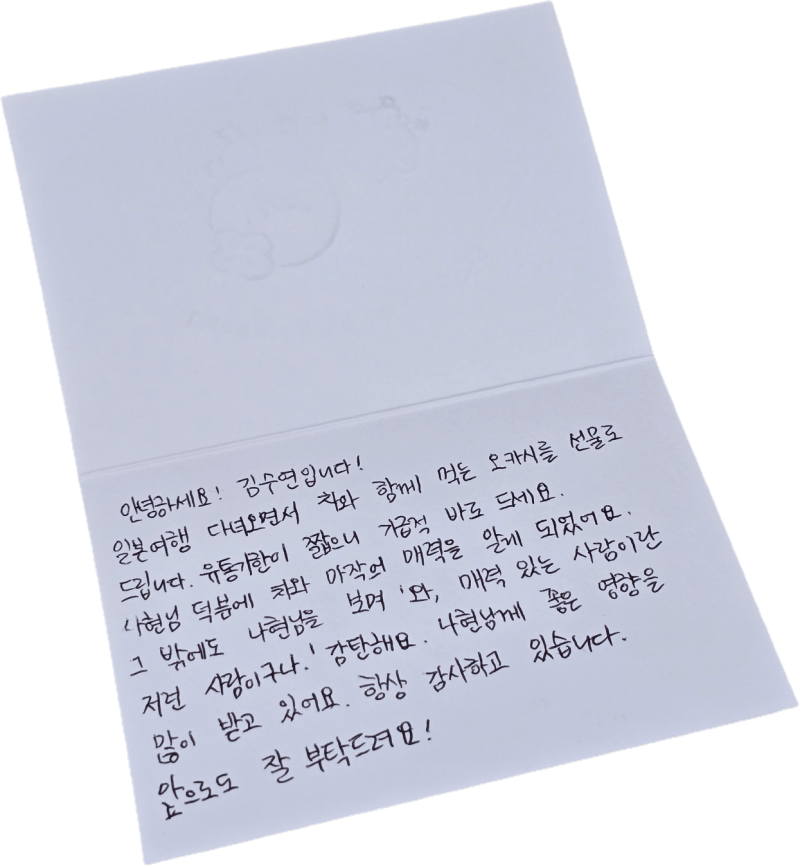 안녕하세요! 김수연입니다!
일본여행 다녀오면서 차와 함께 먹는 오카시를 선물로
드립니다. 유통기한이 짧으니 가급적 바로 드세요.
나현님 덕분에 차와 마작의 매력을 알게 되었어요.
그 밖에도 나현님을 보며 '와, 매력 있는 사람이란
저런 사람이구나.' 감탄해요. 나현님께 좋은 영향을
많이 받고 있어요. 항상 감사하고 있습니다.
앞으로도 잘 부탁드려요!